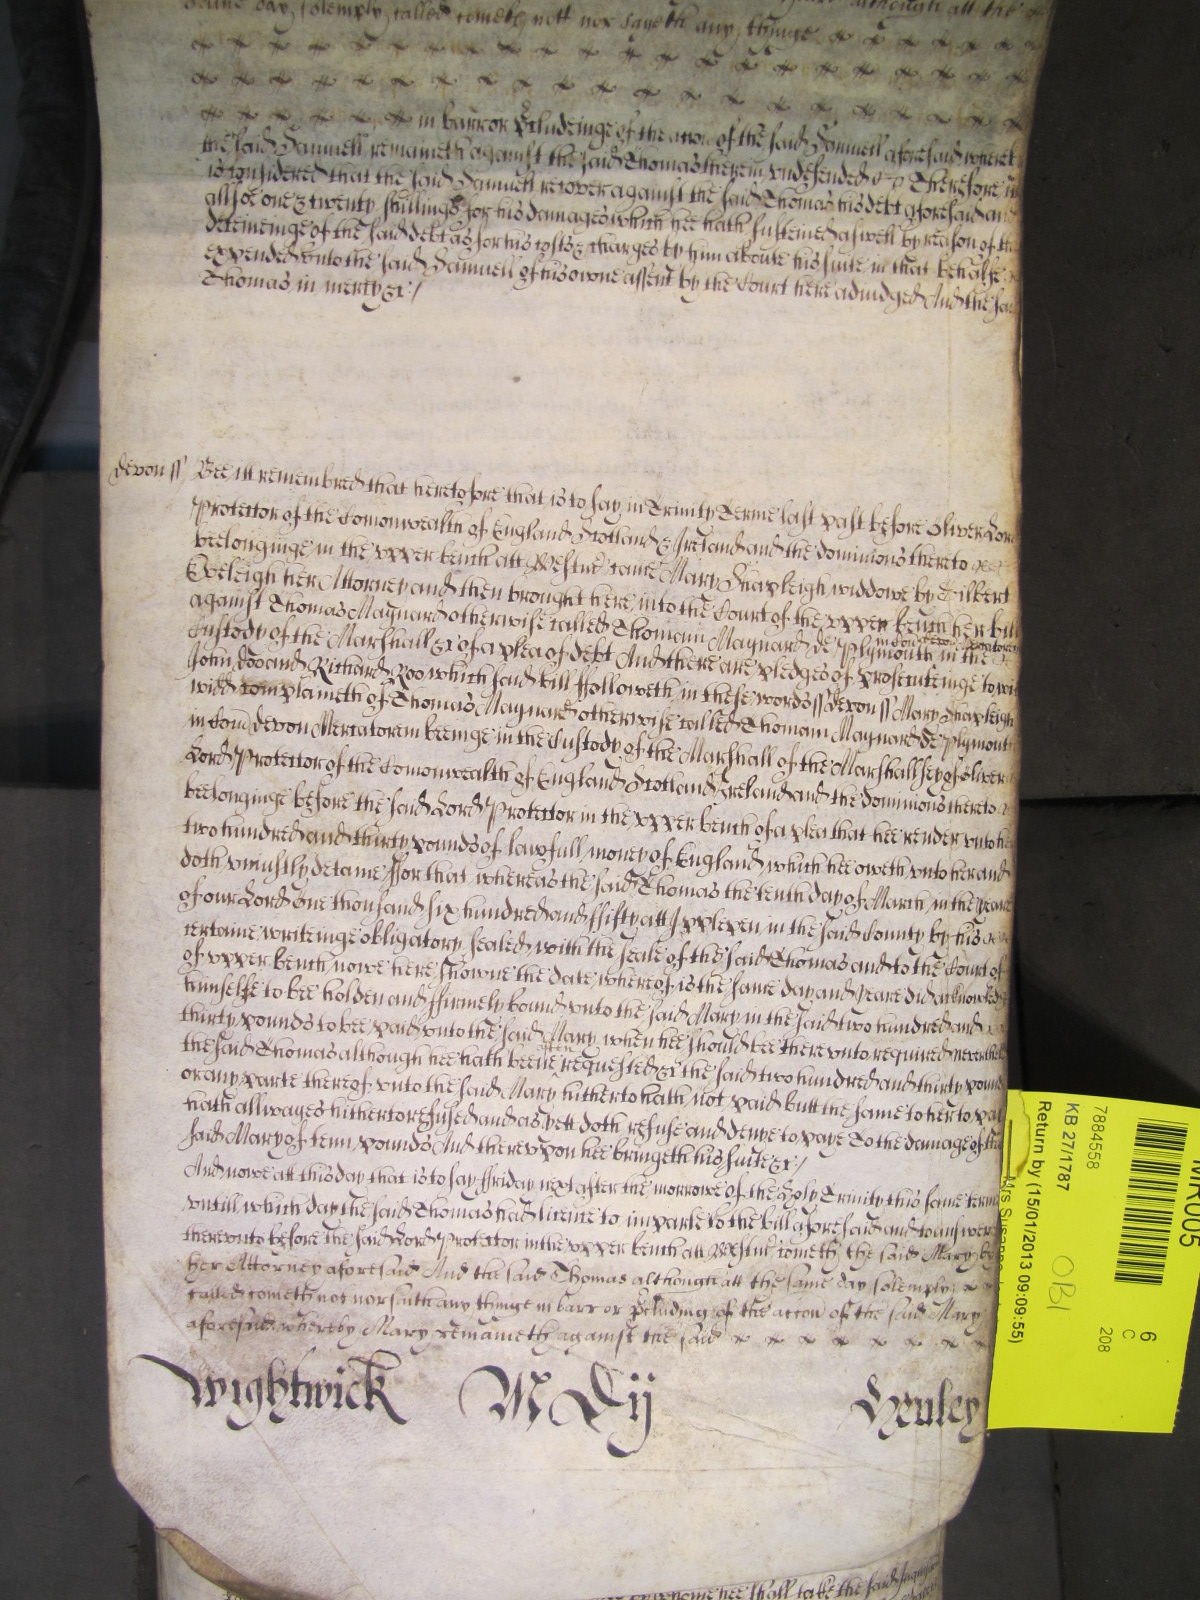 same day solemply called cometh nott nor sayeth any thinge
in barr or p̱cludeinge of the accon of the said Samuell aforesaid whereby
the said Samuell remaineth against the said Thomas therein undefended &c Therefore it
is considered that the said Samuell recover against the said Thomas his debt aforesaid and
allsoe one & twenty shillings for his damages which hee hath susteined aswell by reason of the
deteineinge of the said debt as for his costs & charges by him aboute his suite in that behalfe
expended unto the said Samuell of his owne assent by the Court here adiudged And the said
Thomas in mercy &c/
Devon ss Bee itt remembred that heretofore that is to say in Trinity Terme last past before Oliver Lord
Protector of the Comonwealth of England Scotland & Ireland and the dominions thereto
beelonginge in the upper bench att Westmr came Mary Sharpleigh widdowe by Gilbert
Eveleigh her Attorney and then brought here into the Court of the upper bench her bill
against Thomas Maynard otherwise called Thomam Maynard de Plymouth in the
in Com Devon Mercatorem
Custody of the Marshall &c of a plea of debt And there are pledges of prosecuteinge to witt
John Doo and Richard Roo which said bill ffolloweth in these words ss Devon ss Mary Sharpleigh
widd complaineth of Thomas Maynard otherwise called Thomam Maynard de Plymouth
in Com Devon Mercatorem beeinge in the Custody of the Marshall of the Marshallsey of Oliver
Lord Protector of the Comonwealth of England Scotland & Ireland and the dominions thereto
beelonginge before the said Lord Protector in the upper bench of a plea that hee render unto her
two hundred and thirty pounds of lawfull money of England which hee oweth unto her and
doth uniustly detaine ffor that whereas the said Thomas the tenth day of March in the yeare
of our Lord One thousand six hundred and ffifty att Ipplepen in the said County by his
certaine writeinge obligatory sealed with the seale of the said Thomas and to the Court of
of upper bench nowe here showne the date whereof is the same day and yeare did acknowledge
himselfe to bee holden and ffirmely bound unto the said Mary in the said two hundred and
thirty pounds to bee paid unto the said Mary when hee should bee thereunto required neverthelesse
the said Thomas although hee hath beene often requested &c the said two hundred and thirty pounds
or any parte thereof unto the said Mary hitherto hath not paid butt the same to her to pay
hath allwayes hitherto refused and as yett doth refuse and denye to paye To the damage of the
said Mary of tenn pounds And thereupon hee bringeth his suite &c/
And nowe att this day that is to say ffriday next after the morrowe of the Holy Trinity this same terme
untill which day the said Thomas had licence to imparle to the bill aforesaid and to answere
thereunto before the said Lord Protector in the upper bench att Westmr cometh the said Mary by
her Attorney aforesaid And the said Thomas although att the same day solemply
called cometh not nor saith any thinge in barr or p̱cluding of the accon of the said Mary
aforesaid whereby Mary remaineth against the said
Wightwick
Henley
MR005
6
C
208
7884558
KB 27/1787
OBI
Return by (15/01/2013 09:09:55)